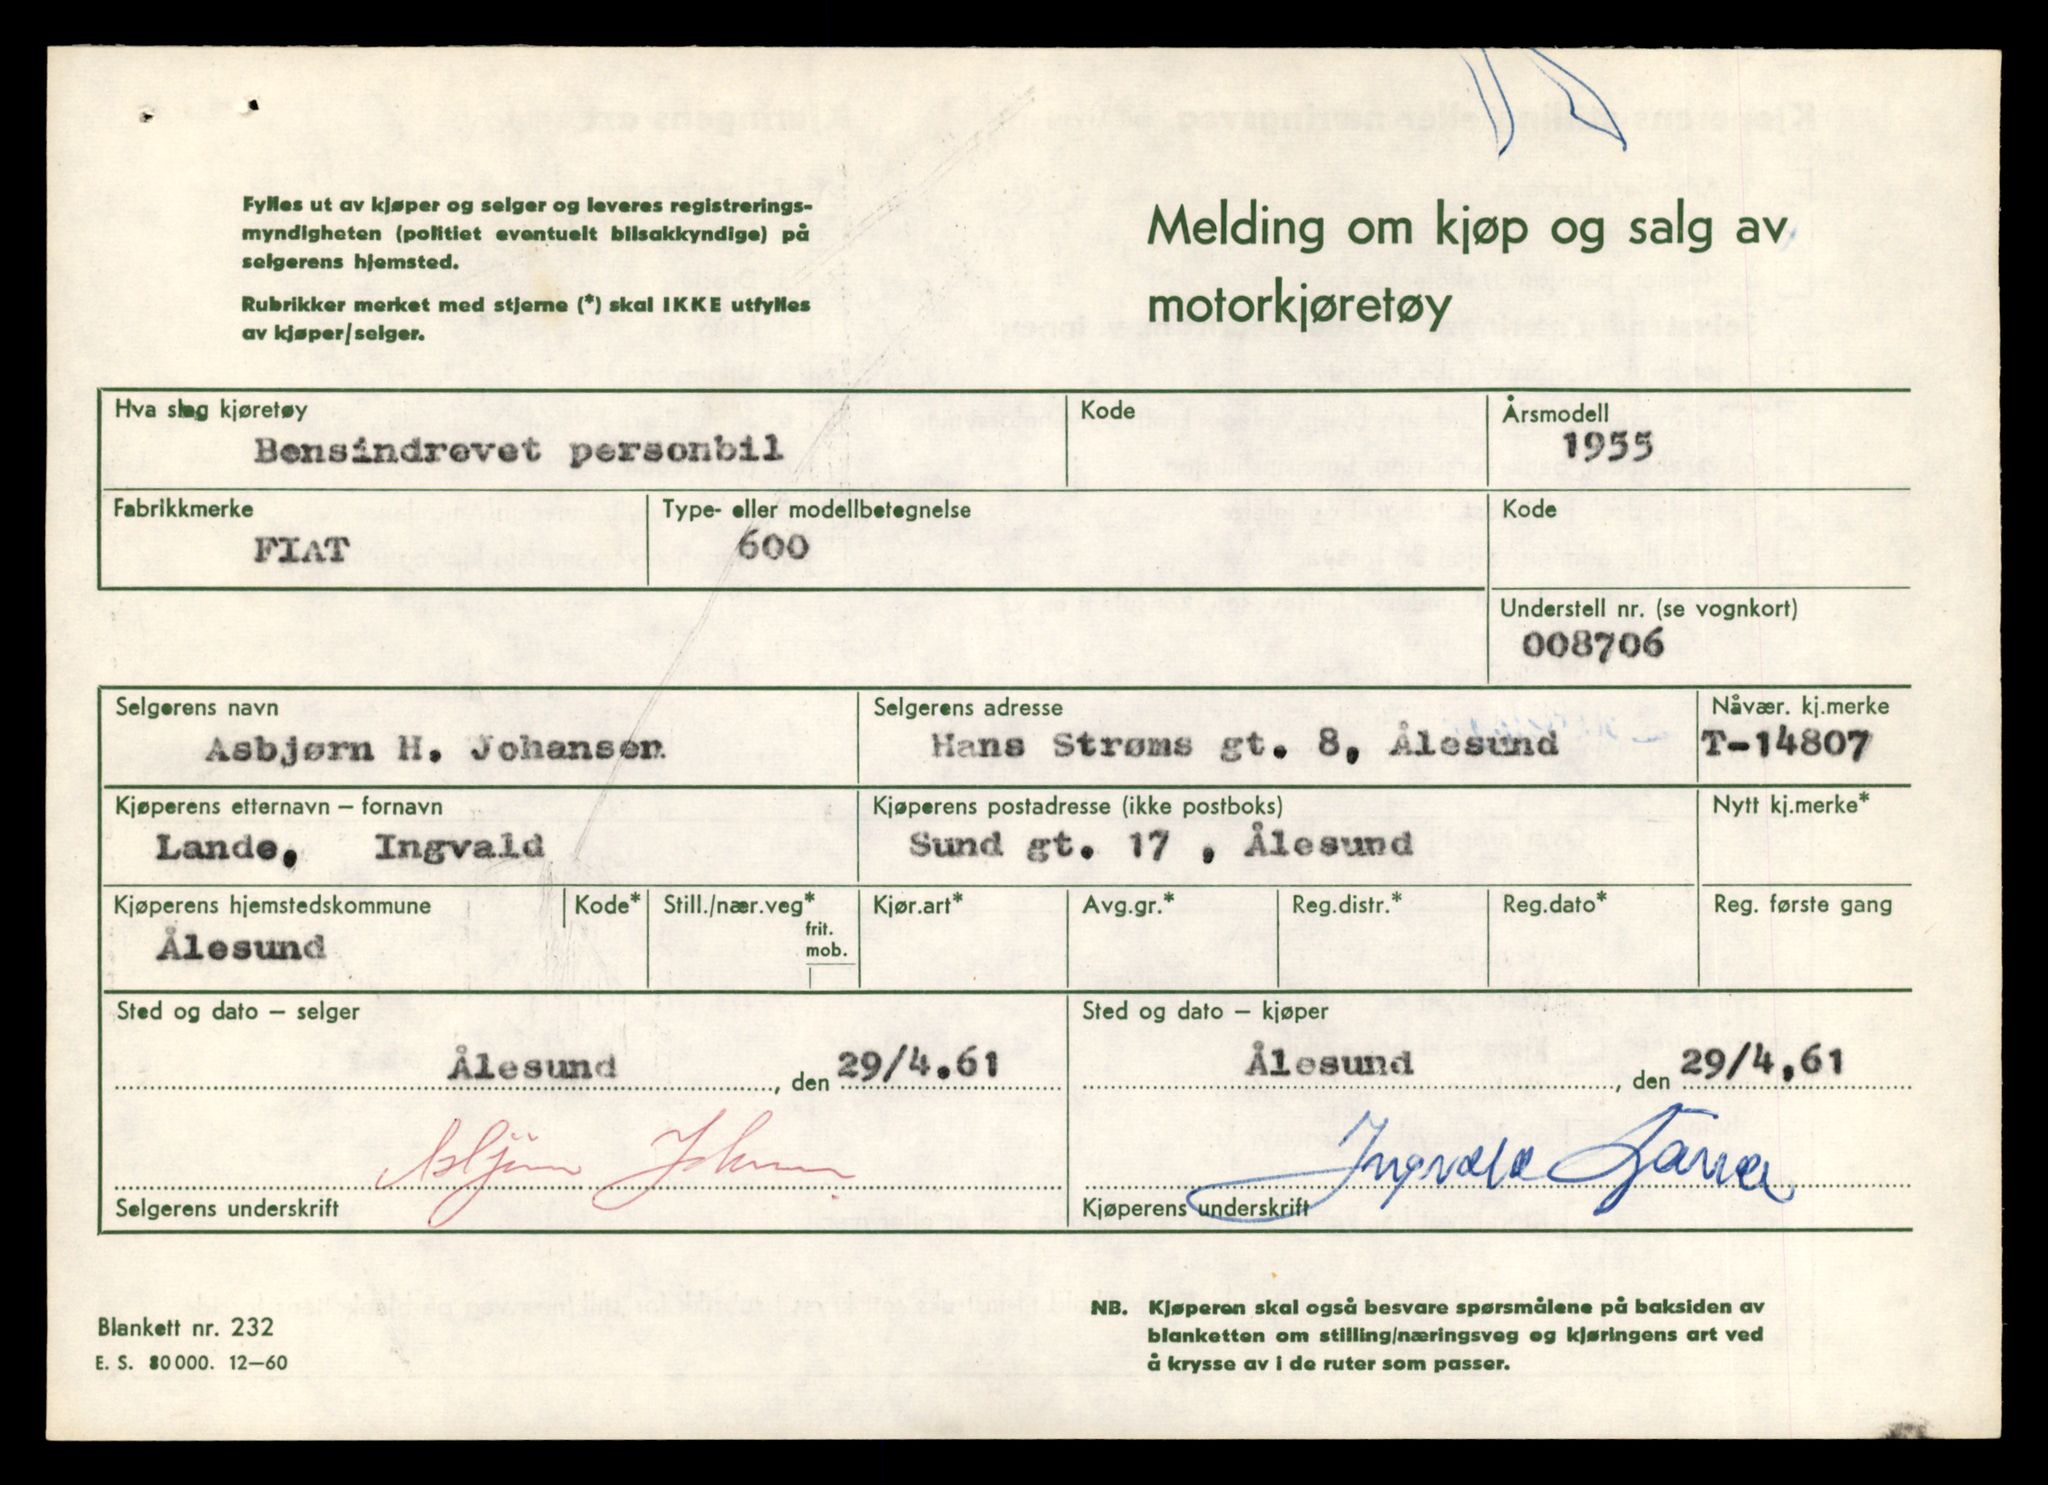 Fylles ut av kjøper og selger og leveres registrerings-
myndigheten (politiet eventuelt bilsakkyndige) på
selgerens hjemsted.
Rubrikker merket med stjerne (*) skal IKKE utfylles
av kjøper/selger.
Melding om kjøp og salg av
motorkjøretøy
Hva slag kjøretøy
Kode
Årsmodell
Bensindrevet personbil
1955
Fabrikkmerke
Type- eller modellbetegnelse
Kode
FIAT
600
Understell nr. (se vognkort)
008706
Selgerens navn
Selgerens adresse
Nåvær. kj.merke
Asbjørn H. Johansen
Hans Strøms gt. 8, Ålesund
T-14807
Kjøperens etternavn – fornavn
Kjøperens postadresse (ikke postboks)
Nytt kj.merke*
Lande, Ingvald
Sund gt. 17 , Ålesund
Kjøperens hjemstedskommune
Kode*
Still./nær.veg*
frit.
mob.
Kjør.art*
Avg.gr.*
Reg.distr.*
Reg.dato*
Reg. første gang
Ålesund
Sted og dato – selger
Sted og dato – kjøper
Ålesund, den 29/4.61
Ålesund, den 29/4,61
Asbjørn Johansen
Ingvald Lande
Selgerens underskrift
Kjøperens underskrift
Blankett nr. 232
E. S. 80000. 12–60
NB. Kjøperen skal også besvare spørsmålene på baksiden av
blanketten om stilling/næringsveg og kjøringens art ved
å krysse av i de ruter som passer.